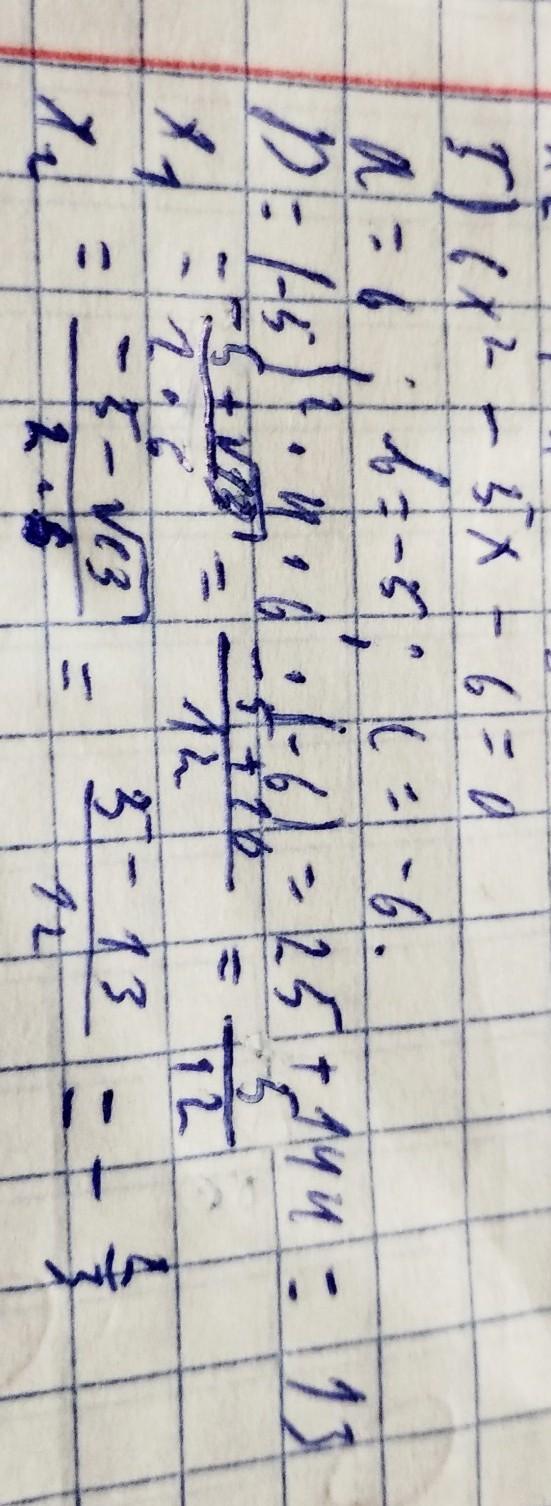 5) 6x² - 5x - 6 = 0
a = 6. b = -5; c = -6.
D = (-5)² · 4 · 6 · (-6) = 25 + 144 = 13
x₁ = -5 + √13 / 2 · 6 = -5 + 10 / 12 = 5 / 12
x₂ = -5 - √13 / 2 · 6 = 5 - 13 / 12 =